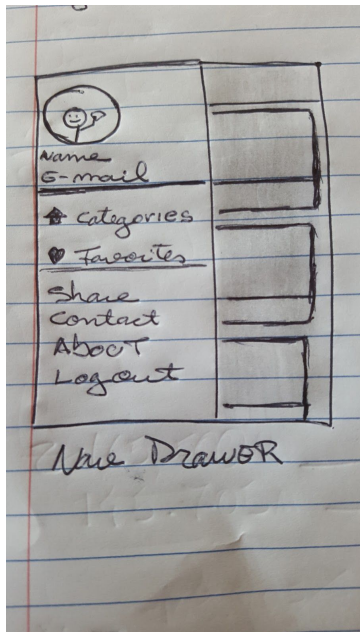 Name
E-mail
Categories
Favorites
Share
Contact
About
Logout
Nave Drawer